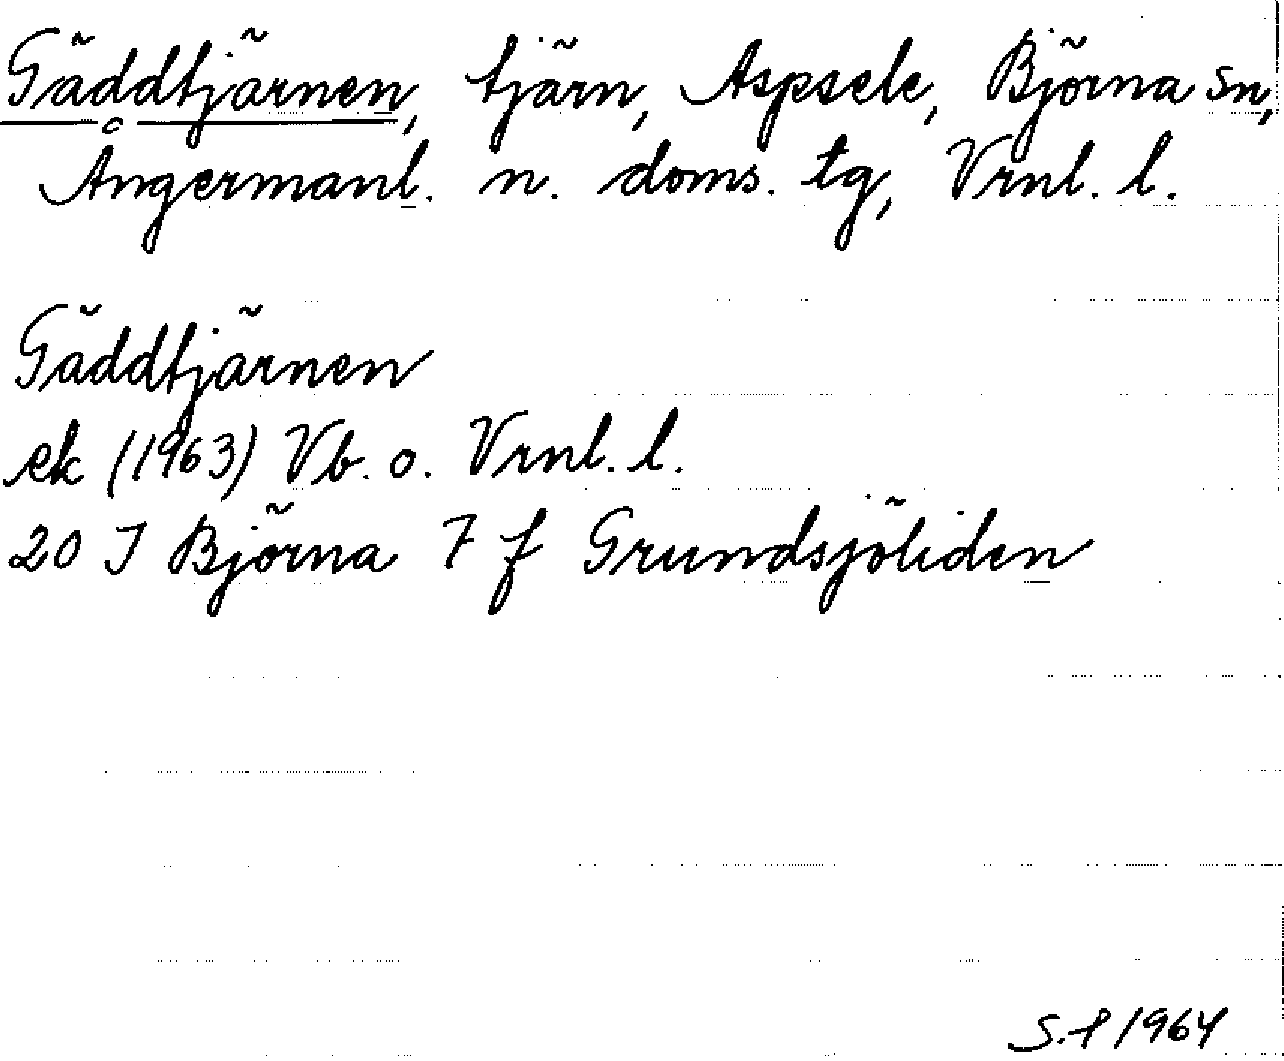 Gäddtjärnen, tjärn, Aspsele, Björna sn,
Ångermanl. n. doms. tg, Vrnl. l.
Gäddtjärnen
ek (1963) Vb. o. Vrnl. l.
20 J Björna 7 f Grundsjöliden
S.P 1964